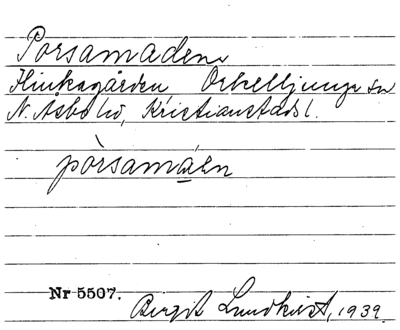 Porsamaden
Hinkagården, Örkelljunga sn
N. Åsbo hd, Kristianstads l.
pòrsamáen
Nr 5507.
Birgit Lundkvist, 1939.